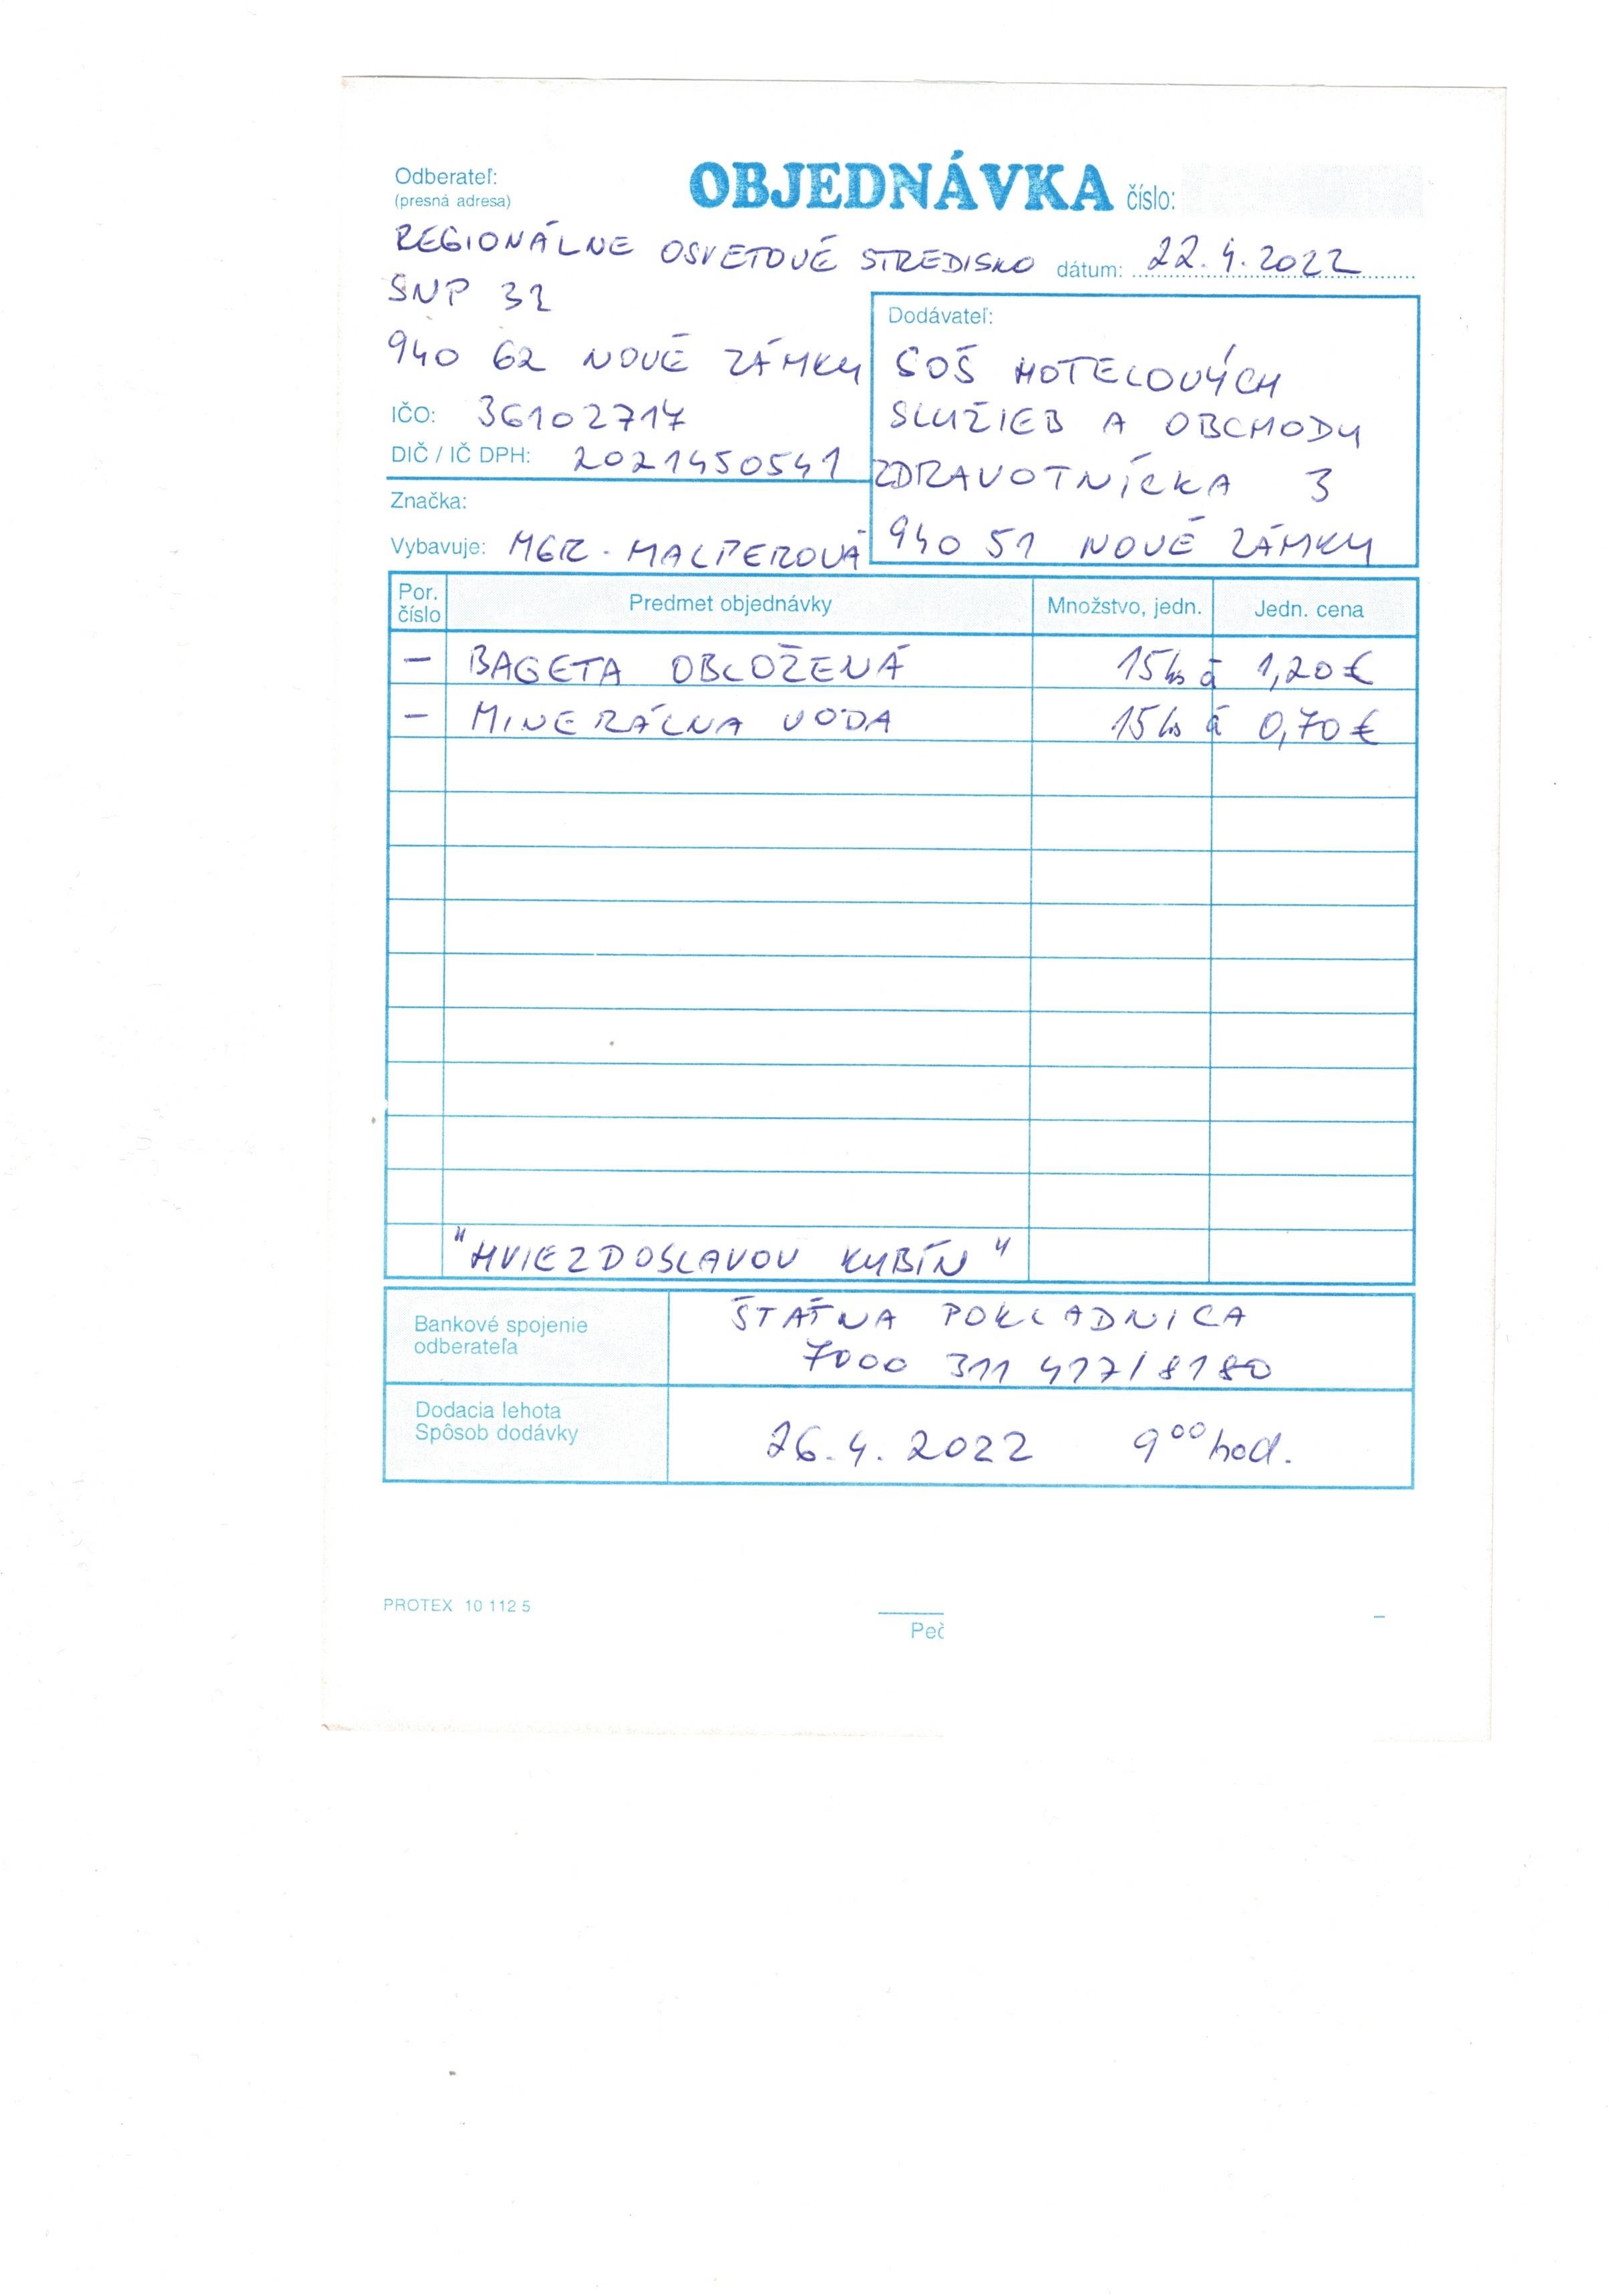 Odberateľ:
(presná adresa)
OBJEDNÁVKA číslo:
REGIONÁLNE OSVETOVÉ STREDISKO dátum: 22.4.2022
SNP 32
940 62 NOVÉ ZÁMKY
IČO: 36102717
DIČ / IČ DPH: 2021450541
Značka:
Vybavuje: MGR. MALPEROVÁ
Dodávateľ:
SOŠ HOTELOVÝCH
SLUŽIEB A OBCHODU
ZDRAVOTNÍCKA 3
940 51 NOVÉ ZÁMKY
Por. číslo Predmet objednávky Množstvo, jedn. Jedn. cena
- BAGETA OBLOŽENÁ 15 ks á 1,20 €
- MINERÁLNA VODA 15 ks á 0,70 €
"HVIEZDOSLAVOV KUBÍN"
Bankové spojenie
odberateľa
ŠTÁTNA POKLADNICA
7000 311 417/8180
Dodacia lehota
Spôsob dodávky
26.4.2022 9⁰⁰ hod.
PROTEX 10 112 5
Peč